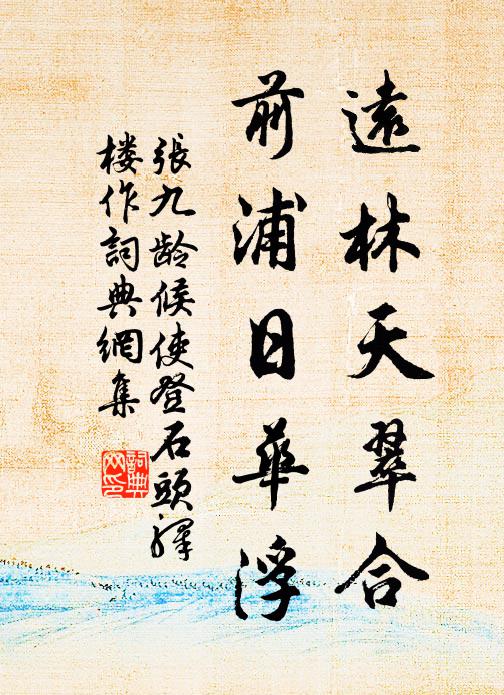 遠林天翠合
前浦日華浮
張九龄候使登石頭驛
楼作詞典網集
詞典
网印